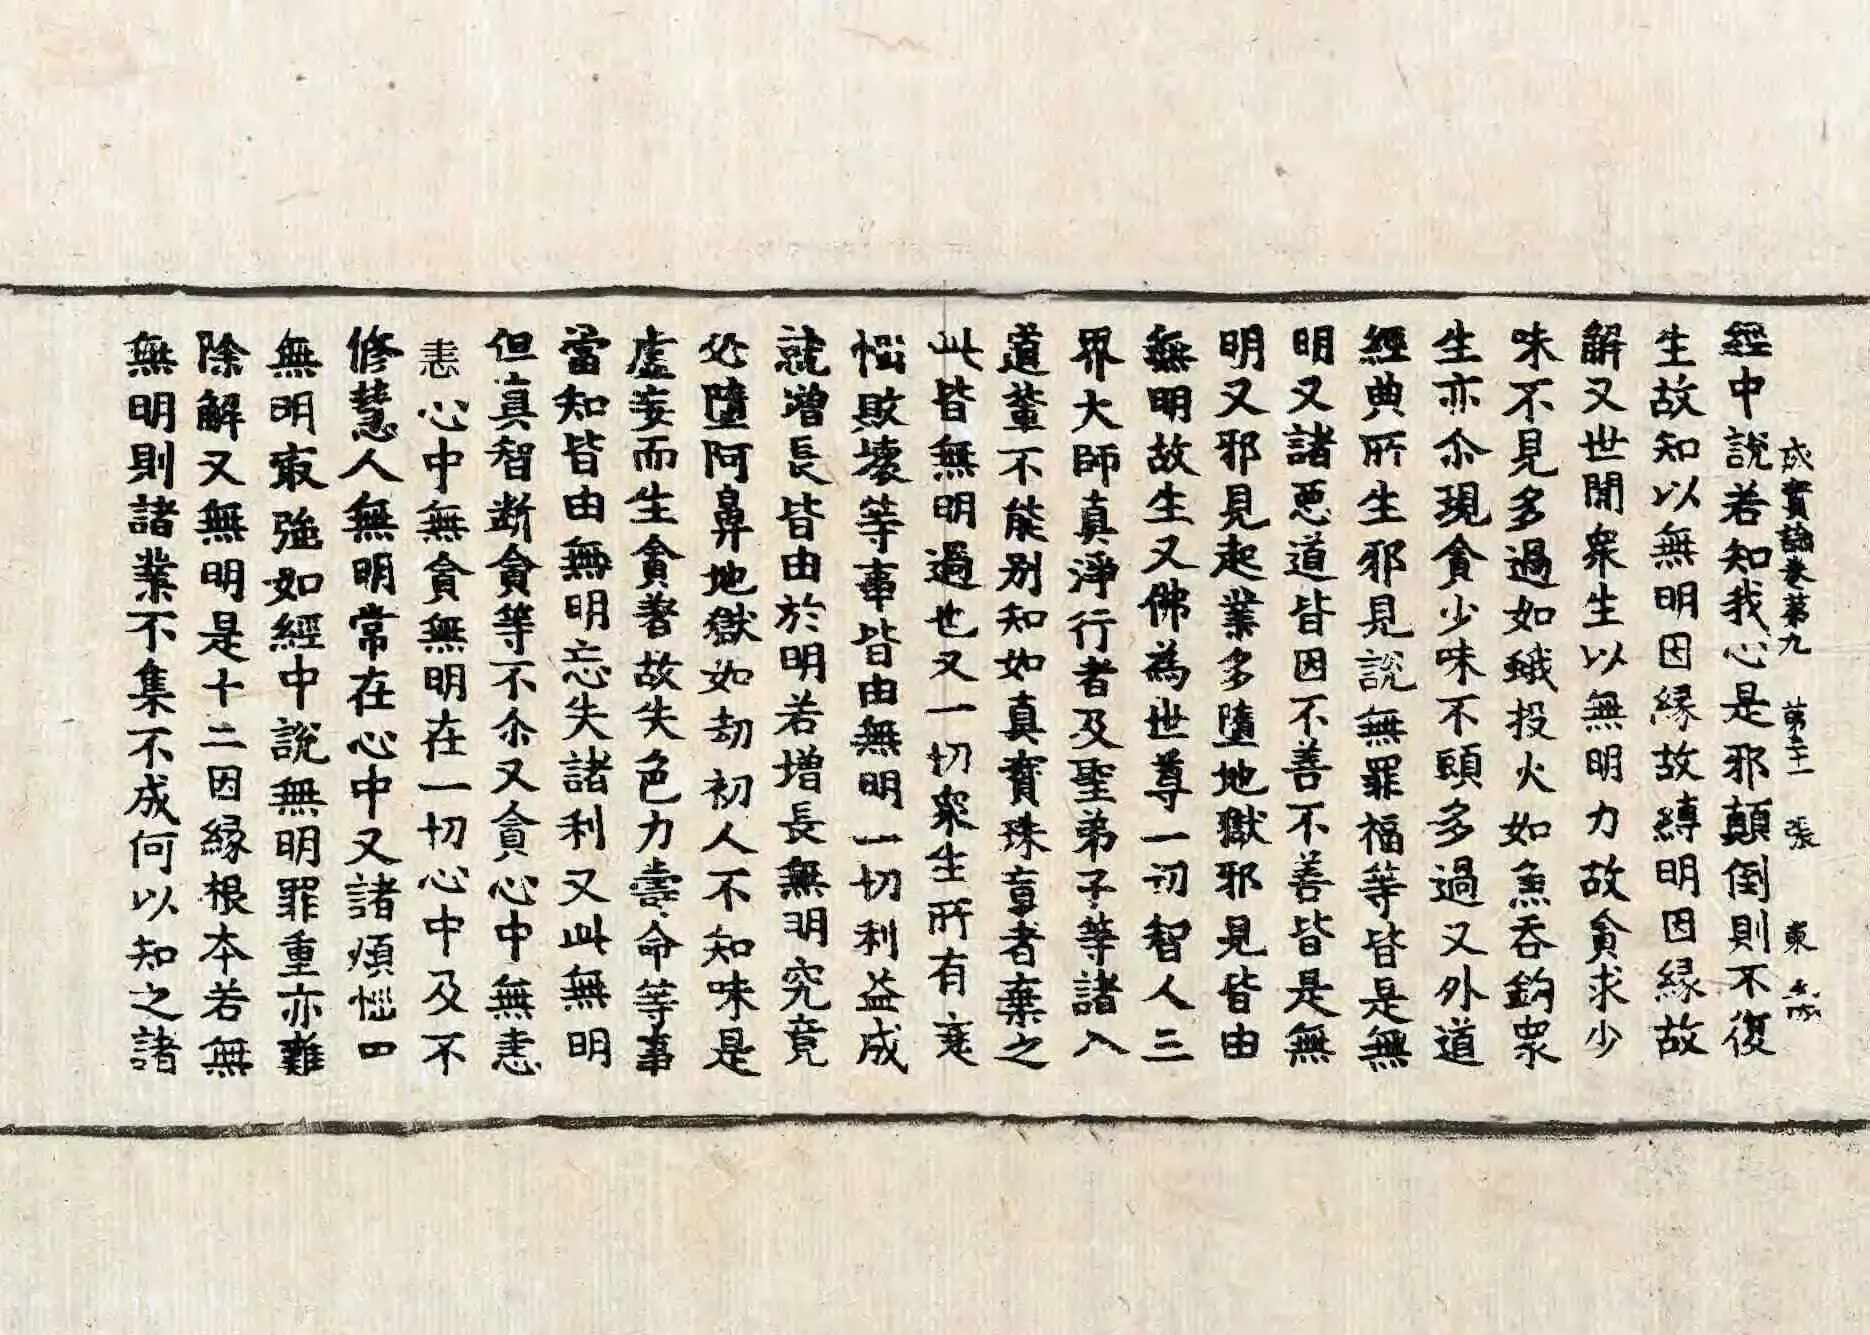 成實論卷第九 第二十一張 東
經中說若知我心是邪顛倒則不復
生故知以無明因緣故縛明因緣故
解又世閒衆生以無明力故貪求少
味不見多過如蛾投火如魚吞鉤衆
生亦尒現貪少味不顧多過又外道
經典所生邪見說無罪福等皆是無
明又諸惡道皆因不善不善皆是無
明又邪見起業多墮地獄邪見皆由
無明故生又佛為世尊一切智人三
界大師真淨行者及聖弟子等諸入
道輩不能別知如真寶珠盲者棄之
此皆無明過也又一切衆生所有衰
惱敗壞等事皆由無明一切利益成
就增長皆由於明若增長無明究竟
必墮阿鼻地獄如劫初人不知味是
虛妄而生貪著故失色力壽命等事
當知皆由無明忘失諸利又此無明
但真智斷貪等不尒又貪心中無恚
恚心中無貪無明在一切心中及不
修慧人無明常在心中又諸煩惱四
無明㝡強如經中說無明罪重亦難
除解又無明是十二因緣根本若無
無明則諸業不集不成何以知之諸